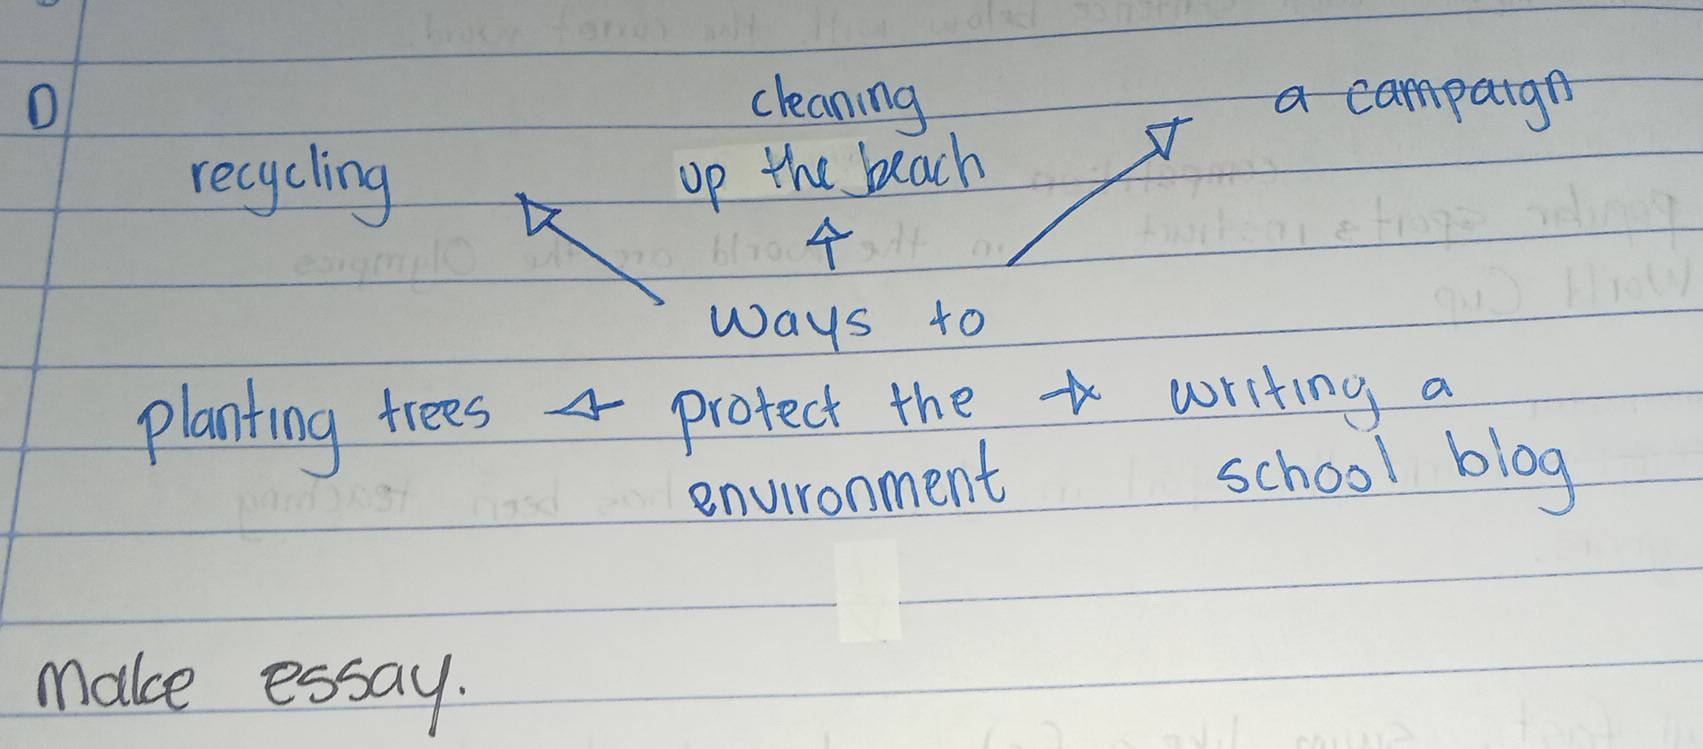 D
recycling
cleaning
up the beach
a campaign
ways to
protect the
environment
planting trees
writing a
school blog
Make essay.